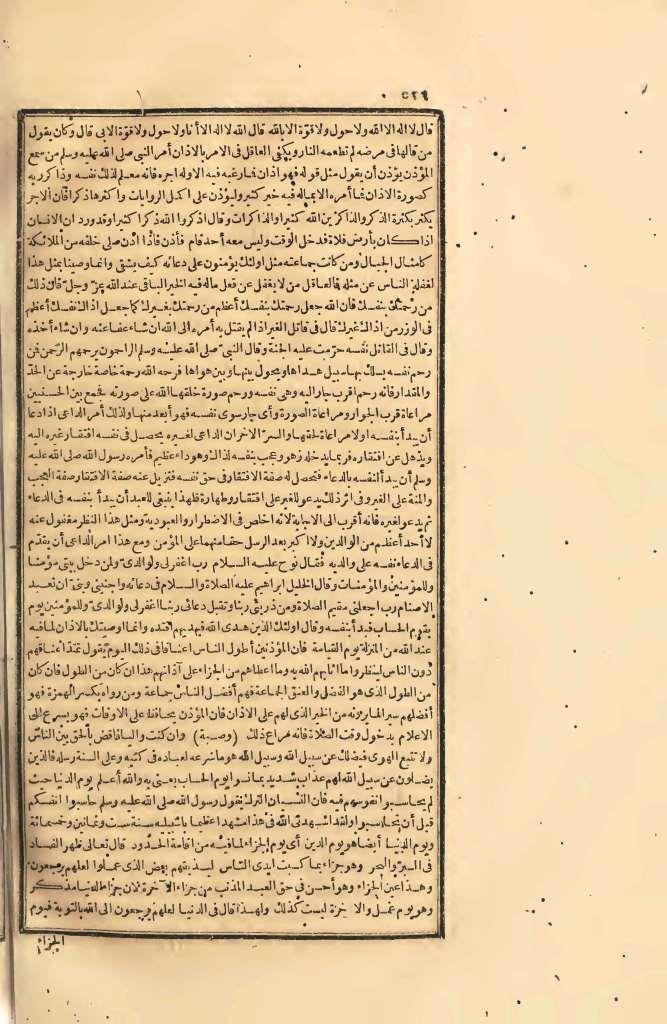 ٥٢٩
قال لا اله الا الله ولا حول ولا قوّة الا بالله قال الله لا اله الا أنا ولا حول ولا قوّة الا بي قال وكان يقول
من قالها في مرضه لم تطعمه النار ويكفي العاقل في الامر بالاذان أمر النبي صلى الله عليه وسلم من سمع
المؤذن يؤذن أن يقول مثل قوله فهو اذان فارغبه فيه الا وله اجره فانه معلم لذلك نفسه وذاكر ربه
كصورة الاذان فما أمره الا بماله فيه خير كثير وليؤذن على اكمل الروايات واكثرها ذكرا فان الاجر
يكثر بكثرة الذكر والذاكرين الله كثيرا والذاكرات وقال اذكروا الله ذكرا كثيرا وقد ورد ان الانسان
اذا كان بأرض فلاة فدخل الوقت وليس معه أحد قام فأذن فاذا اذن صلى خلفه من الملائكة
كامثال الجبال ومن كانت جماعته مثل اولئك يؤمنون على دعائه كيف يشقى وانما وصينا بمثل هذا
لغفلة الناس عن مثله فالعاقل من لا يغفل عن فعل ماله فيه الخير الباقي عند الله عزّ وجلّ فان ذلك
من رحمتك بنفسك فان الله جعل رحمتك بنفسك أعظم من رحمتك بغيرك كما جعل اذاك نفسك أعظم
في الوزر من اذاك غيرك قال في قاتل الغير اذا لم يقتل به أمره الى الله ان شاء عفا عنه وان شاء أخذه
وقال في القاتل نفسه حرّمت عليه الجنة وقال النبيّ صلى الله عليه وسلم الراحمون يرحمهم الرّحمن فمن
رحم نفسه يسلك بها سبيل هداها ويحول بينها وبين هواها فرحمه الله رحمة خاصة خارجة عن الحدّ
والمقدار فانه رحم اقرب جار اليه وهي نفسه ورحم صورة خلقها الله على صورته فجمع بين الحسنيين
مراعاة قرب الجوار ومراعاة الصورة وأي جار سوى نفسه فهو أبعد منها ولذلك أمر الداعي اذا دعا
أن يبدأ بنفسه اولا مراعاة لحقها والسرّ الاخران الداعي لغيره يحصل في نفسه افتقار غيره اليه
ويذهل عن افتقاره فربما يدخله زهو وعجب بنفسه لذلك وهو داء عظيم فأمره رسول الله صلى الله عليه
وسلم أن يبدأ لنفسه بالدعاء فتحصل له صفة الافتقار في حق نفسه فتزيل عنه صفة الافتقار صفة العجب
والمنة على الغير وفي اثر ذلك يدعو للغير على افتقار وطهارة فلهذا ينبغي للعبد أن يبدأ بنفسه في الدعاء
ثم يدعو لغيره فانه أقرب الى الاجابة لانه اخلص في الاضطرار والعبودية ومثل هذا النظر مغفول عنه
لا أحد أعظم من الوالدين ولا اكبر بعد الرسل حقا منهما على المؤمن ومع هذا امر الداعي أن يقدّم
في الدعاء نفسه على والديه فقال نوح عليه السلام رب اغفر لي ولوالديّ ولمن دخل بيتي مؤمنا
وللمؤمنين والمؤمنات وقال الخليل ابراهيم عليه الصلاة والسلام في دعائه واجنبني وبنيّ ان نعبد
الاصنام رب اجعلني مقيم الصلاة ومن ذريتي ربنا وتقبل دعائي ربنا اغفر لي ولوالديّ وللمؤمنين يوم
يقوم الحساب فبدأ بنفسه وقال اولئك الذين هدى الله فبهديهم اقتده وانما اوصيتك بالاذان لما فيه
عند الله من المنزلة يوم القيامة فان المؤذنين أطول الناس اعناقا في ذلك اليوم يقول تمتدّ أعناقهم
دون الناس لينظروا ما اثابهم الله به وما اعطاهم من الجزاء على آذانهم هذا ان كان من الطول فان كان
من الطول الذي هو الفضل والعنق الجماعة فهم أفضل الناس جماعة ومن رواه بكسر الهمزة فهو
أفضلهم سيرا لما يرونه من الخير الذي لهم على الاذان فان المؤذن يحافظ على الاوقات فهو يسرع الى
الاعلام بدخول وقت الصلاة فانه مراع ذلك (وصية) وان كنت واليا فاقض بالحق بين الناس
ولا تتبع الهوى فيضلك عن سبيل الله وسبيل الله هو ما شرعه لعباده في كتبه وعلى السنة رسله فالذين
يضلون عن سبيل الله لهم عذاب شديد بما نسوا يوم الحساب يعني به والله أعلم يوم الدنيا حيث
لم يحاسبوا نفوسهم فيه فان النسيان الترك يقول رسول الله صلى الله عليه وسلم حاسبوا انفسكم
قبل أن تحاسبوا ولقد اشهدني الله في هذا مشهدا عظيما باشبيلية سنة ست وثمانين وخمسمائة
ويوم الدنيا أيضا هو يوم الدين أي يوم الجزاء لما فيه من اقامة الحدود قال تعالى ظهر الفساد
في البرّ والبحر وهو جزاء بما كسبت ايدى الناس ليذيقهم بعض الذي عملوا لعلهم يرجعون
وهذا عين الجزاء وهو أحسن في حق العبد المذنب من جزاء الآخرة لان جزاء الدنيا مذكر
وهو يوم عمل والآخرة ليست كذلك ولهذا قال في الدنيا لعلهم يرجعون الى الله بالتوبة فيوم
الجزاء